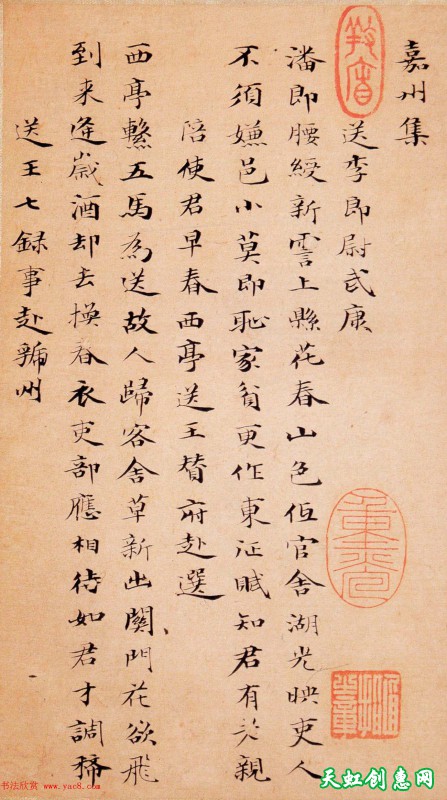 嘉州集
送李郎尉武康
潘郎腰綬新霅上縣花春山色低官舍湖光映吏人
不須嫌邑小莫即恥家貧更作東征賦知君有老親
陪使君早春西亭送王贊府赴選
西亭繫五馬為送故人歸客舍草新出關門花欲飛
到来逢歲酒却去換春衣吏部應相待如君才調稀
送王七録事赴虢州
书法欣赏 www.yac8.com
天虹创惠网